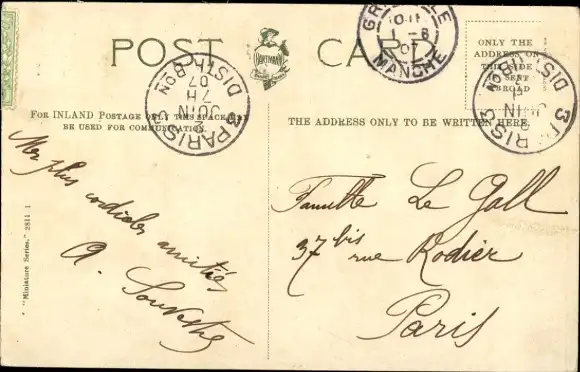 POST CARD
HARTMANN
GR LLE
1 - 6
07
MANCHE
ONLY THE
ADDRESS ON
THIS SIDE
IF SENT
ABROAD
PARIS 3
DISTRIB ON
7 H
2
JUIN
07
PARIS 3
DISTRIB ON
JUIN
FOR INLAND POSTAGE ONLY THIS SPACE MAY
BE USED FOR COMMUNICATION.
THE ADDRESS ONLY TO BE WRITTEN HERE.
Mes plus cordiales amitiés
A. Souvestre
Famille Le Gall
37 bis rue Rodier
Paris
"Miniature Series." 2811 1